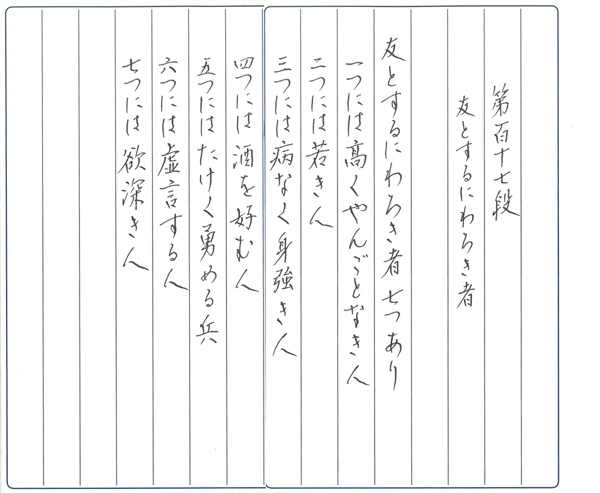 第百十七段
友とするにわろき者
友とするにわろき者七つあり
一つには高くやんごとなき人
二つには若き人
三つには病なく身強き人
四つには酒を好む人
五つにはたけく勇める兵
六つには虚言する人
七つには欲深き人